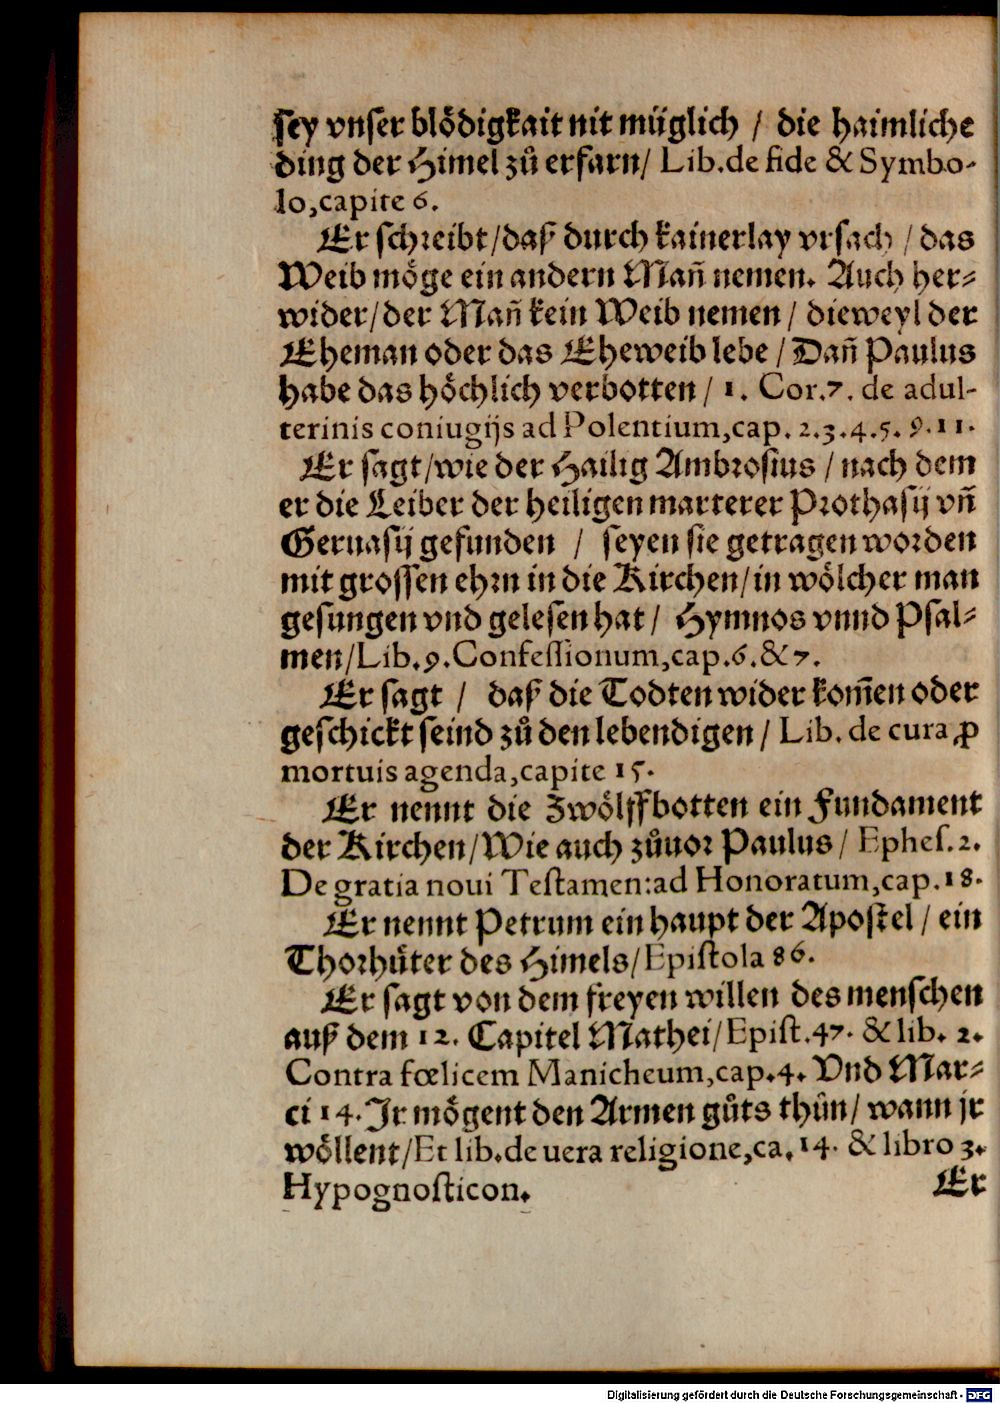 sey vnser blödigkait nit müglich / die haimliche
ding der Himel zů erfarn/ Lib.de fide & Symbo-
lo,capite 6.
Er schreibt/daß durch kainerlay vrsach /das
Weib möge ein andern Mañ nemen. Auch her-
wider/der Mañ kein Weib nemen / dieweyl der
Eheman oder das Eheweib lebe / Dañ Paulus
habe das höchlich verbotten / 1. Cor.7. de adul-
terinis coniugijs ad Polentium,cap. 2.3.4.5. 9.11.
Er sagt/wie der Hailig Ambrosius / nach dem
er die Leiber der heiligen marterer Prothasij vñ
Geruasij gefunden / seyen sie getragen worden
mit grossen ehrn in die Kirchen/in wölcher man
gesungen vnd gelesen hat / Hymnos vnnd Psal-
men/Lib.9.Confessionum,cap.6.&7.
Er sagt / daß die Todten wider kom̃en oder
geschickt seind zů den lebendigen / Lib. de cura ꝓ
mortuis agenda,capite 15.
Er nennt die Zwölffbotten ein Fundament
der Kirchen/Wie auch zůuor Paulus / Ephes.2.
De gratia noui Testamen:ad Honoratum,cap.18.
Er nennt Petrum ein haupt der Apostel / ein
Thorhůter des Himels/Epistola 86.
Er sagt von dem freyen willen des menschen
auß dem 12. Capitel Mathei/Epist.47. & lib. 2.
Contra fœlicem Manicheum,cap.4. Vnd Mar-
ci 14.Jr mögent den Armen gůts thůn/ wann jr
wöllent/Et lib.de uera religione,ca.14. & libro 3.
Hypognosticon.
Er
Digitalisierung gefördert durch die Deutsche Forschungsgemeinschaft - DFG